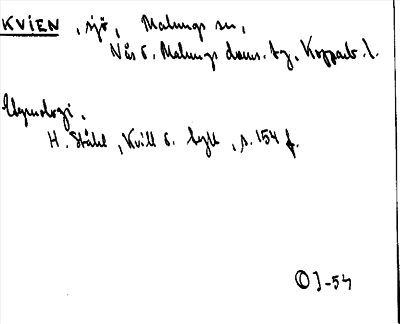 KVIEN, sjö, Malungs sn,
Nås o. Malungs doms. tg, Kopparb. l.
Etymologi.
H. Ståhl, Kvill o. tyll, s. 154 f.
OJ-54